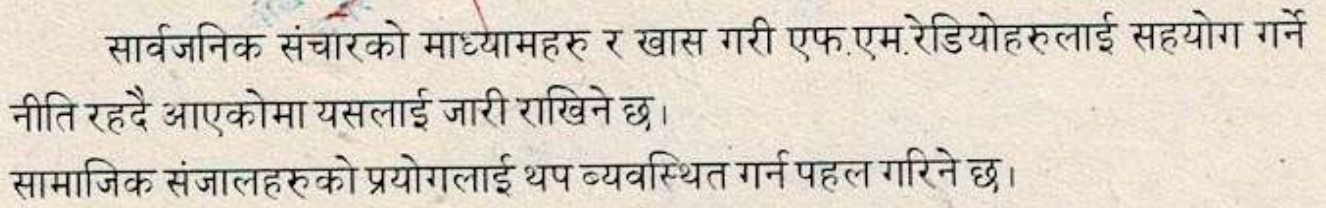 सार्वजनिक संचारको माध्यामहरु र खास गरी एफ.एम.रेडियोहरुलाई सहयोग गर्ने
नीति रहदै आएकोमा यसलाई जारी राखिने छ।
सामाजिक संजालहरुको प्रयोगलाई थप व्यवस्थित गर्न पहल गरिने छ।